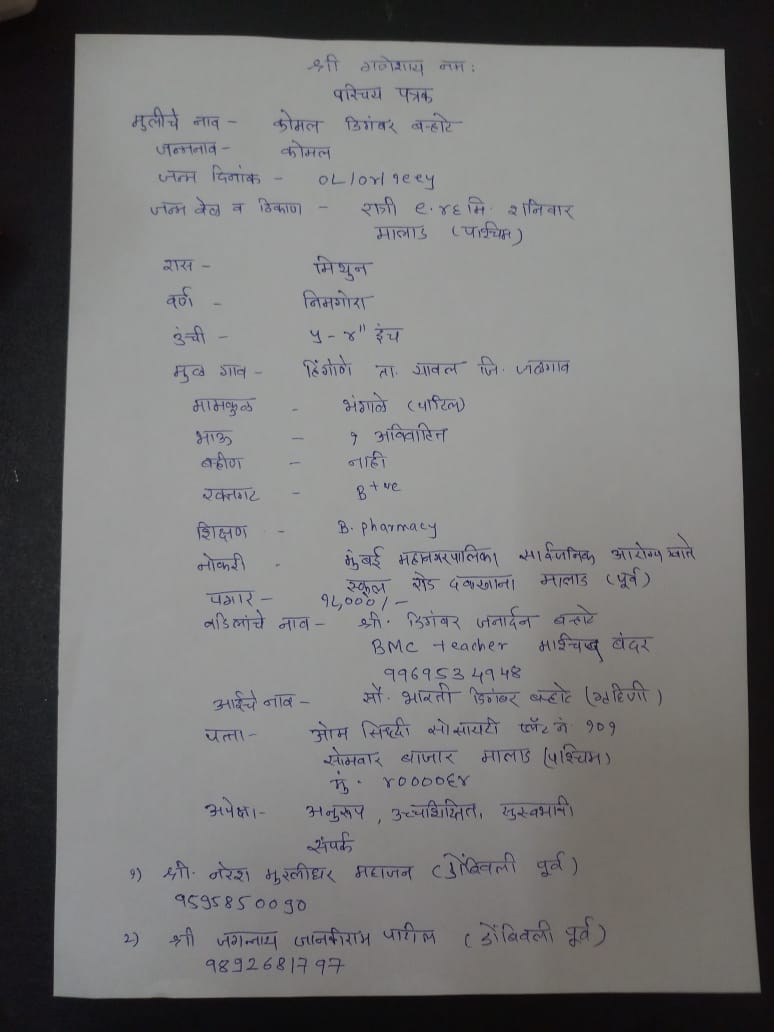 श्री गणेशाय नम:
परिचय पत्रक
मुलीचे नाव - कोमल डिगंबर बऱ्हाटे
जन्मनाव - कोमल
जन्म दिनांक - ०८/०४/१९९५
जन्म वेळ व ठिकाण - रात्री ९.४६ मि. शनिवार
मालाड (पश्चिम)
रास - मिथुन
वर्ण - निमगोरा
उंची - ५ - ४" इंच
मुळ गाव - हिंगोणे ता. यावल जि. जळगाव
मामकुळ - भंगाळे (पाटिल)
भाऊ - १ अविवाहित
बहीण - नाही
रक्तगट - B+ve
शिक्षण - B. pharmacy
नोकरी - मुंबई महानगरपालिका सार्वजनिक आरोग्य खाते
स्कूल रोड दवाखाना मालाड (पूर्व)
पगार - १८,०००/-
वडिलांचे नाव - श्री. डिगंबर जनार्दन बऱ्हाटे
BMC teacher बंदर
9969534948
आईचे नाव - सौ. भारती डिगंबर बऱ्हाटे (गृहिणी)
पत्ता - ओम सिध्दी सोसायटी प्लॅट नं १०१
सोमवार बाजार मालाड (पश्चिम)
मुं. ४०००६४
अपेक्षा - अनुरूप, उच्चशिक्षित, सुस्वभावी
संपर्क
१) श्री. नरेश मुरलीधर महाजन (डोंबिवली पूर्व)
9595850090
2) श्री जगन्नाथ जानकीराम पाटील (डोंबिवली पूर्व)
9892681797